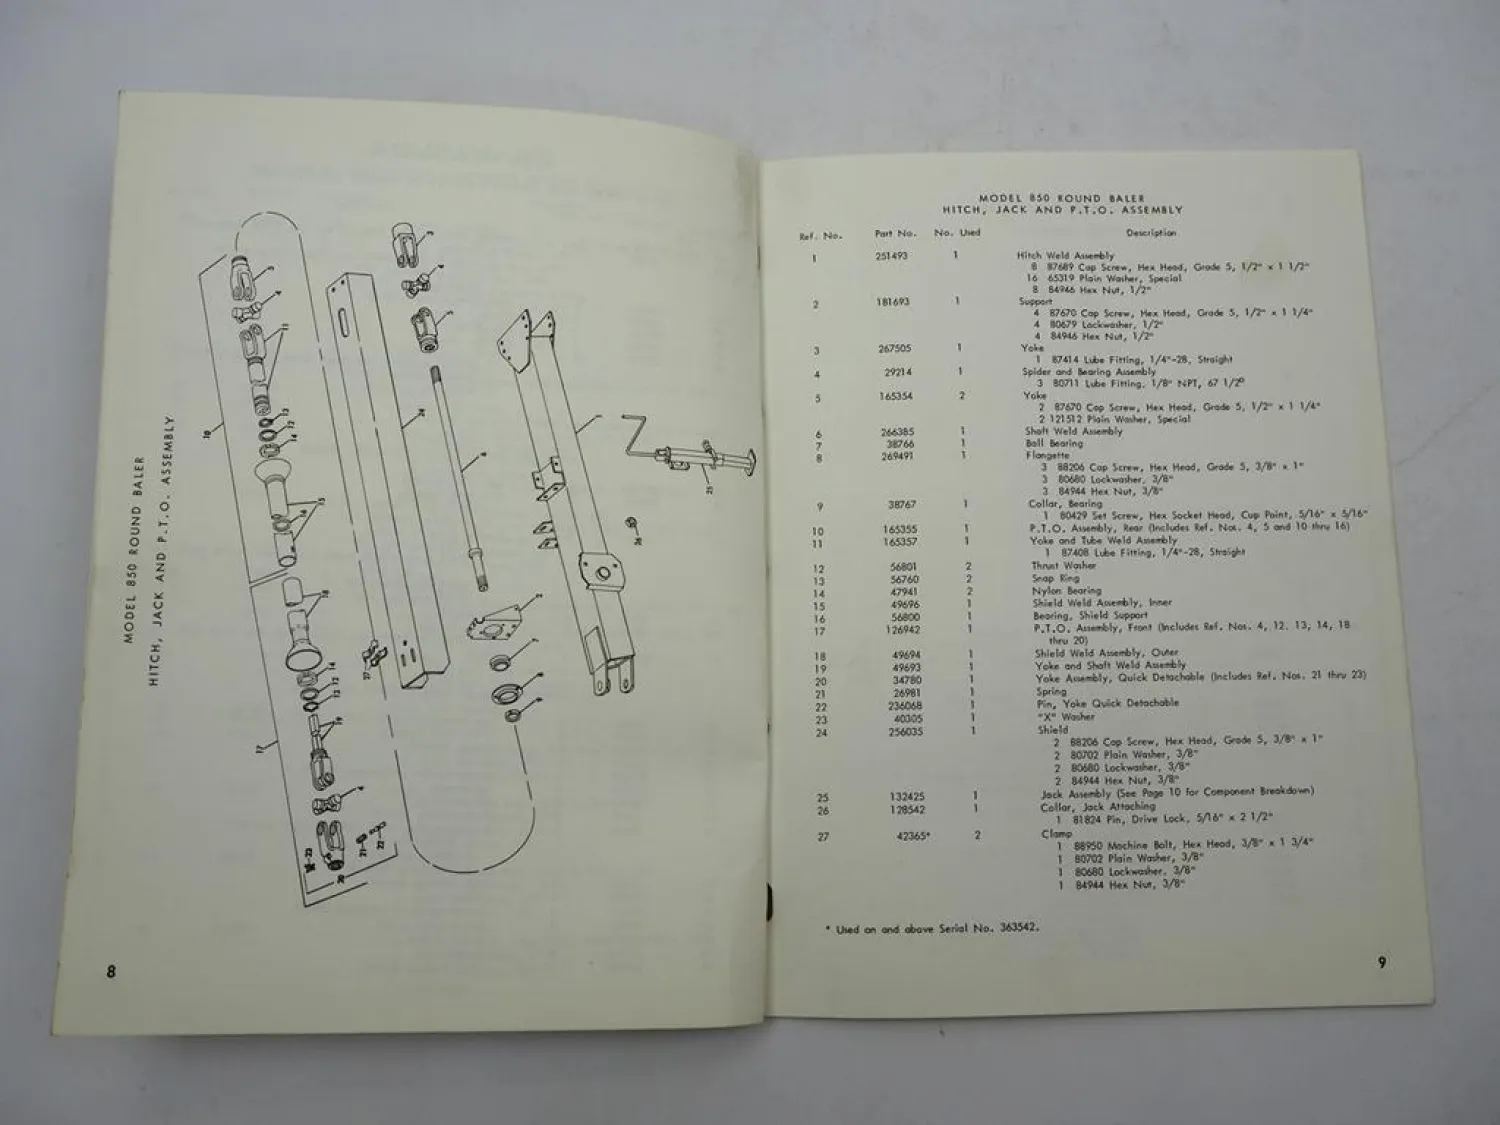 MODEL 850 ROUND BALER
HITCH, JACK AND P.T.O. ASSEMBLY
8
MODEL 850 ROUND BALER
HITCH, JACK AND P.T.O. ASSEMBLY
Ref. No. Part No. No. Used Description
1 251493 1 Hitch Weld Assembly
8 87689 Cap Screw, Hex Head, Grade 5, 1/2" x 1 1/2"
16 65319 Plain Washer, Special
8 84946 Hex Nut, 1/2"
2 181693 1 Support
4 87670 Cap Screw, Hex Head, Grade 5, 1/2" x 1 1/4"
4 80679 Lockwasher, 1/2"
4 84946 Hex Nut, 1/2"
3 267505 1 Yoke
1 87414 Lube Fitting, 1/4"-28, Straight
4 29214 1 Spider and Bearing Assembly
3 80711 Lube Fitting, 1/8" NPT, 67 1/2°
5 165354 2 Yoke
2 87670 Cap Screw, Hex Head, Grade 5, 1/2" x 1 1/4"
2 121512 Plain Washer, Special
6 266385 1 Shaft Weld Assembly
7 38766 1 Ball Bearing
8 269491 1 Flangette
3 88206 Cap Screw, Hex Head, Grade 5, 3/8" x 1"
3 80680 Lockwasher, 3/8"
3 84944 Hex Nut, 3/8"
9 38767 1 Collar, Bearing
1 80429 Set Screw, Hex Socket Head, Cup Point, 5/16" x 5/16"
10 165355 1 P.T.O. Assembly, Rear (Includes Ref. Nos. 4, 5 and 10 thru 16)
11 165357 1 Yoke and Tube Weld Assembly
1 87408 Lube Fitting, 1/4"-28, Straight
12 56801 2 Thrust Washer
13 56760 2 Snap Ring
14 47941 2 Nylon Bearing
15 49696 1 Shield Weld Assembly, Inner
16 56800 1 Bearing, Shield Support
17 126942 1 P.T.O. Assembly, Front (Includes Ref. Nos. 4, 12, 13, 14, 18
thru 20)
18 49694 1 Shield Weld Assembly, Outer
19 49693 1 Yoke and Shaft Weld Assembly
20 34780 1 Yoke Assembly, Quick Detachable (Includes Ref. Nos. 21 thru 23)
21 26981 1 Spring
22 236068 1 Pin, Yoke Quick Detachable
23 40305 1 "X" Washer
24 256035 1 Shield
2 88206 Cap Screw, Hex Head, Grade 5, 3/8" x 1"
2 80702 Plain Washer, 3/8"
2 80680 Lockwasher, 3/8"
2 84944 Hex Nut, 3/8"
25 132425 1 Jack Assembly (See Page 10 for Component Breakdown)
26 128542 1 Collar, Jack Attaching
1 81824 Pin, Drive Lock, 5/16" x 2 1/2"
27 42365* 2 Clamp
1 88950 Machine Bolt, Hex Head, 3/8" x 1 3/4"
1 80702 Plain Washer, 3/8"
1 80680 Lockwasher, 3/8"
1 84944 Hex Nut, 3/8"
* Used on and above Serial No. 363542.
9